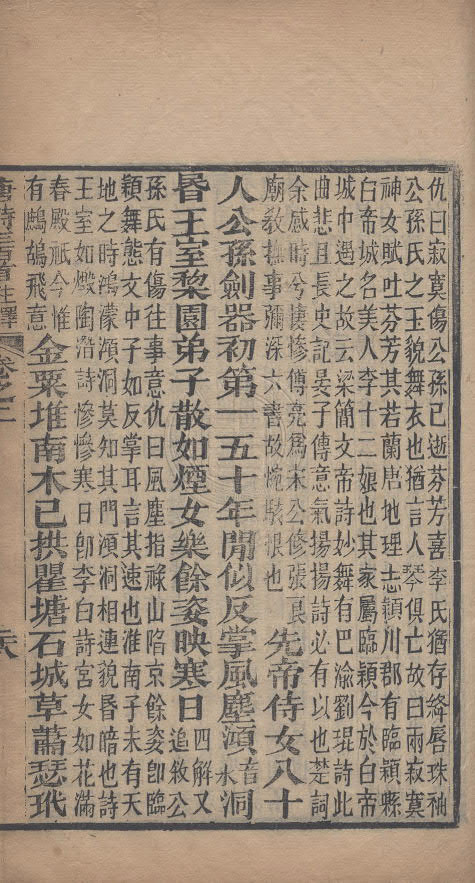 仇曰寂寞傷公孫已逝芬芳喜李氏猶存絳唇珠袖
公孫氏之玉貌舞衣也猶言人琴俱亡故曰兩寂寞
神女賦吐芬芳其若蘭唐地理志潁川郡有臨潁縣
白帝城名美人李十二娘也其家屬臨潁今於白帝
城中遇之故云梁簡文帝詩妙舞有巴渝劉琨詩此
曲悲且長史記晏子傳意氣揚揚詩必有以也楚詞
余感時兮悽慘傅亮為宋公修張良
廟教撫事彌深六書故惋駭恨也
先帝侍女八十
人公孫劍器初第一五十年閒似反掌風塵澒音水洞
昬王室棃園弟子散如煙女樂餘姿映寒日
四解又
追敘公
孫氏有傷往事意仇曰風塵指祿山陷京餘姿卽臨
潁舞態文中子如反掌耳言其速也淮南子未有天
地之時鴻濛澒洞莫知其門澒洞相連貌昬暗也詩
王室如燬陶潛詩慘慘寒日卽李白詩宮女如花滿
春殿祇今惟
有鷓鴣飛意
金粟堆南木已拱瞿塘石城草蕭瑟玳
唐詩三百首註釋 卷之二